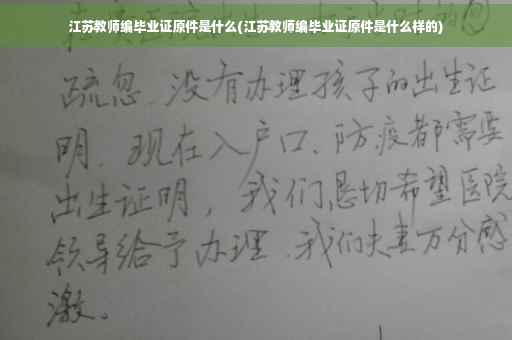 江苏教师编毕业证原件是什么(江苏教师编毕业证原件是什么样的)
疏忽.没有办理孩子的出生证
明.现在入户口、防疫都需要
出生证明，我们恳切希望医院
领导给予办理.我们夫妻万分感
激。